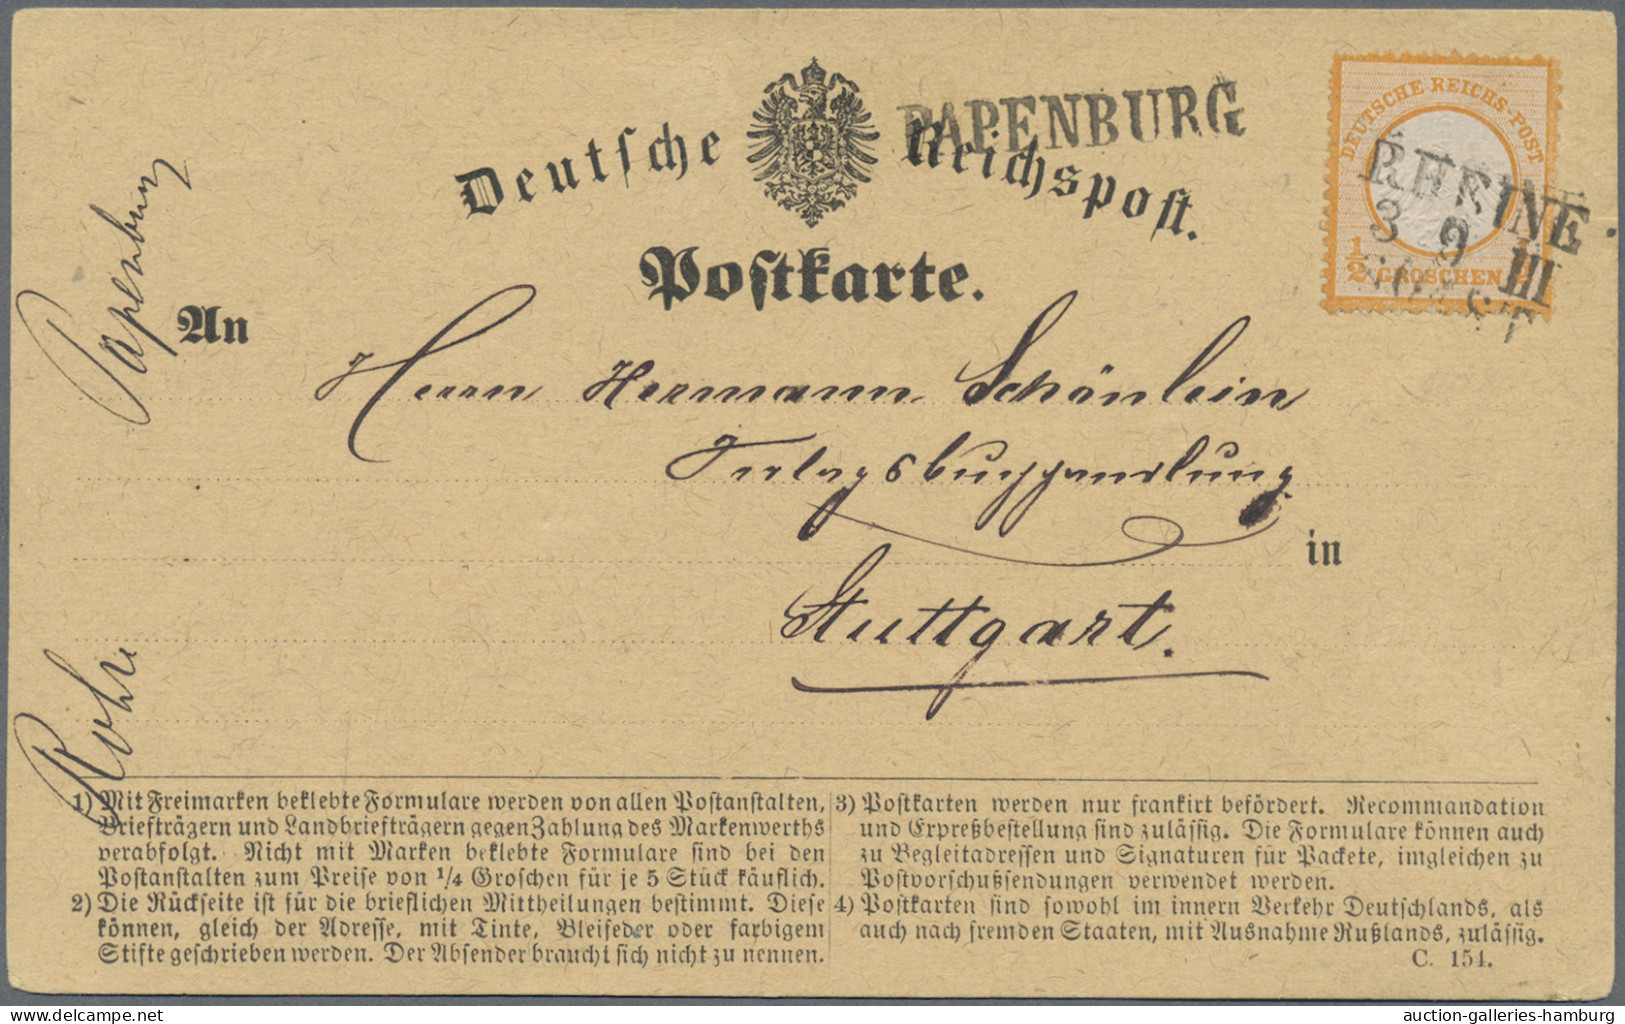 Deutsche Reichspost.
PAPENBURG
DEUTSCHE REICHS-POST
½ GROSCHEN ½
RHEINE
3 9 III
Postkarte.
An
Herrn Hermann Schönlein
Verlagsbuchhandlung
in
Stuttgart.
Papenburg
1) Mit Freimarken beklebte Formulare werden von allen Postanstalten,
Briefträgern und Landbriefträgern gegen Zahlung des Markenwerths
verabfolgt. Nicht mit Marken beklebte Formulare sind bei den
Postanstalten zum Preise von 1/4 Groschen für je 5 Stück käuflich.
2) Die Rückseite ist für die brieflichen Mittheilungen bestimmt. Diese
können, gleich der Adresse, mit Tinte, Bleifeder oder farbigem
Stifte geschrieben werden. Der Absender braucht sich nicht zu nennen.
3) Postkarten werden nur frankirt befördert. Recommandation
und Expreßbestellung sind zulässig. Die Formulare können auch
zu Begleitadressen und Signaturen für Packete, imgleichen zu
Postvorschußsendungen verwendet werden.
4) Postkarten sind sowohl im innern Verkehr Deutschlands, als
auch nach fremden Staaten, mit Ausnahme Rußlands, zulässig.
C. 154.
www.delcampe.net
auction-galleries-hamburg